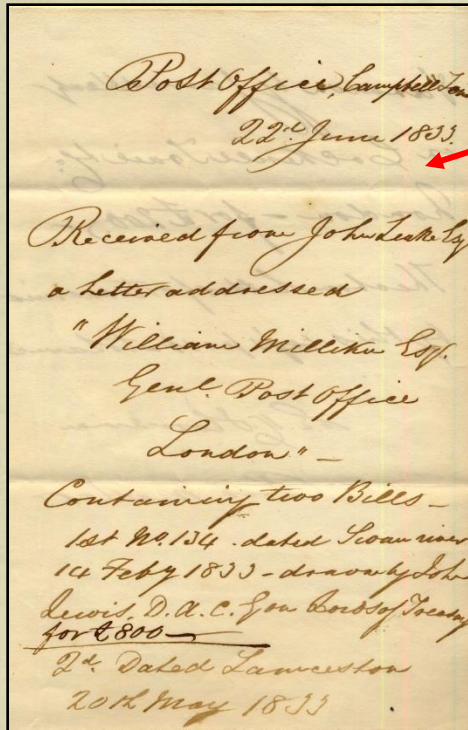 Post Office, Campbell Town
22d. June 1833.
Received from John Leake Esq
a Letter addressed
"William Milliken Esqr.
Genl. Post Office
London" –
Containing two Bills –
1st No. 134 . dated Swan river
14 Feby 1833 – drawn by John
Lewis, D. A. C. G on Lords of Treasury
for £800 –
2d. Dated Launceston
20th May 1833